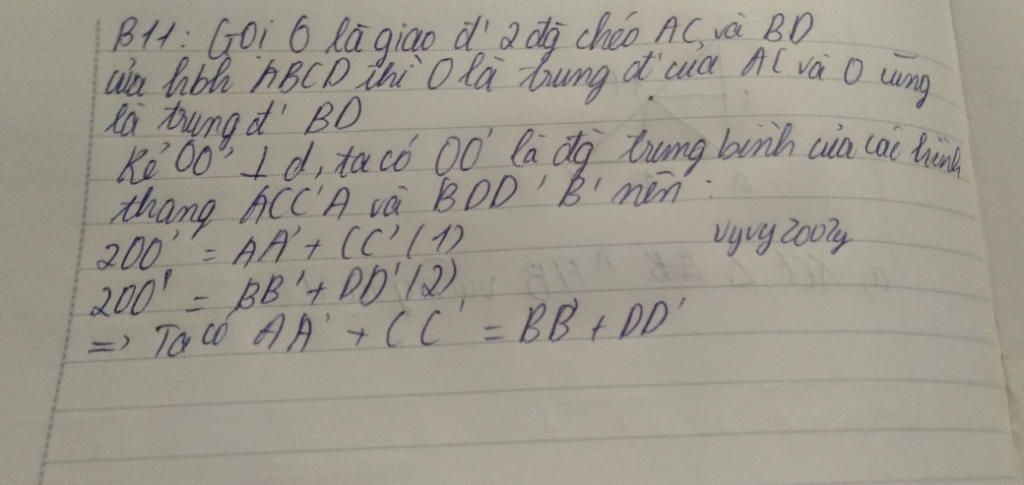 B11: Gọi O là giao đ' 2 đg chéo AC và BD
của hbh ABCD thì O là trung đ' của AC và O cũng
là trung đ' BD
Kẻ OO' ⊥ d, ta có OO' là đg trung bình của các hình
thang ACC'A và BDD'B' nên:
2OO' = AA' + CC' (1)
vyvy2002y
2OO' = BB' + DD' (2)
=> Ta có AA' + CC' = BB' + DD'